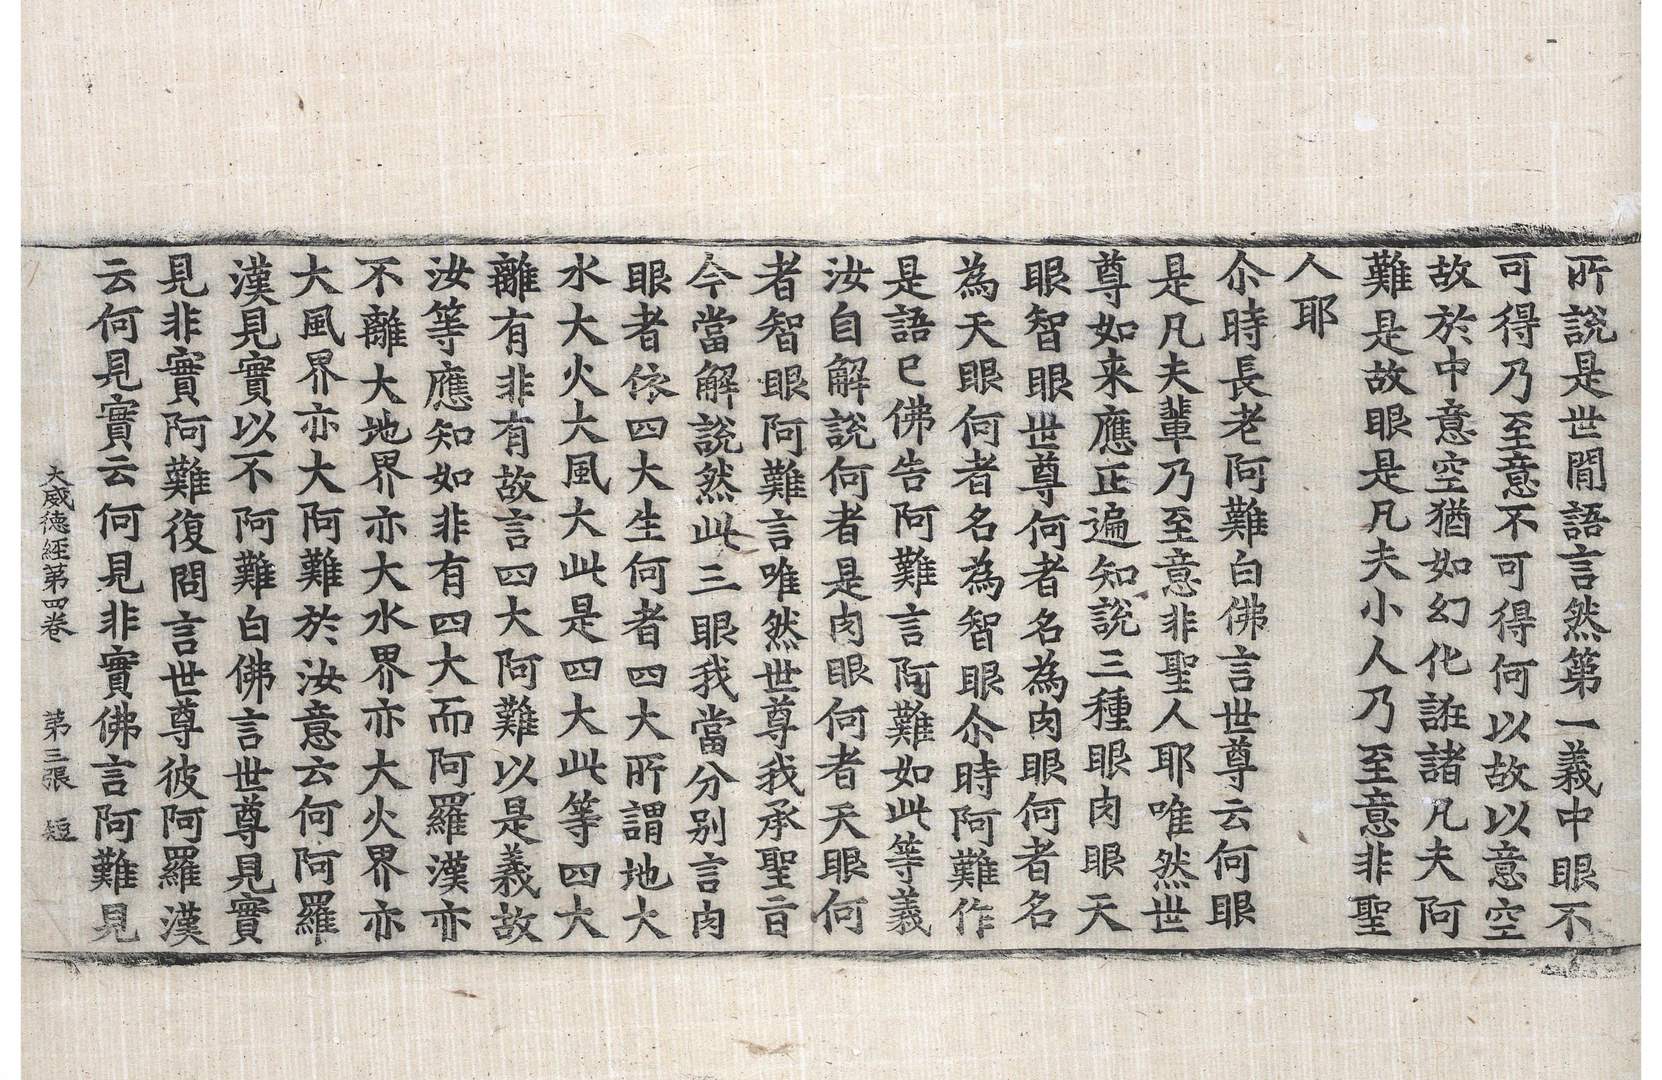 所說是世間語言然第一義中眼不
可得乃至意不可得何以故以意空
故於中意空猶如幻化誑諸凡夫阿
難是故眼是凡夫小人乃至意非聖
人耶
尒時長老阿難白佛言世尊云何眼
是凡夫輩乃至意非聖人耶唯然世
尊如来應正遍知說三種眼肉眼天
眼智眼世尊何者名為肉眼何者名
為天眼何者名為智眼尒時阿難作
是語已佛告阿難言阿難如此等義
汝自解說何者是肉眼何者天眼何
者智眼阿難言唯然世尊我承聖旨
今當解說然此三眼我當分別言肉
眼者依四大生何者四大所謂地大
水大火大風大此是四大此等四大
離有非有故言四大阿難以是義故
汝等應知如非有四大而阿羅漢亦
不離大地界亦大水界亦大火界亦
大風界亦大阿難於汝意云何阿羅
漢見實以不阿難白佛言世尊見實
見非實阿難復問言世尊彼阿羅漢
云何見實云何見非實佛言阿難見
大威德經第四卷　第三張　短